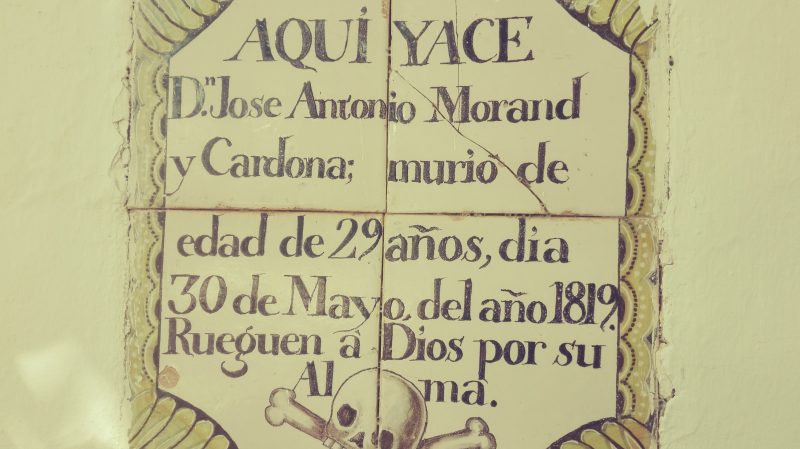 AQUÍ YACE
D.ⁿ Jose Antonio Morand
y Cardona; murio de
edad de 29 años, dia
30 de Mayo, del año 1819.
Rueguen à Dios por su
Alma.